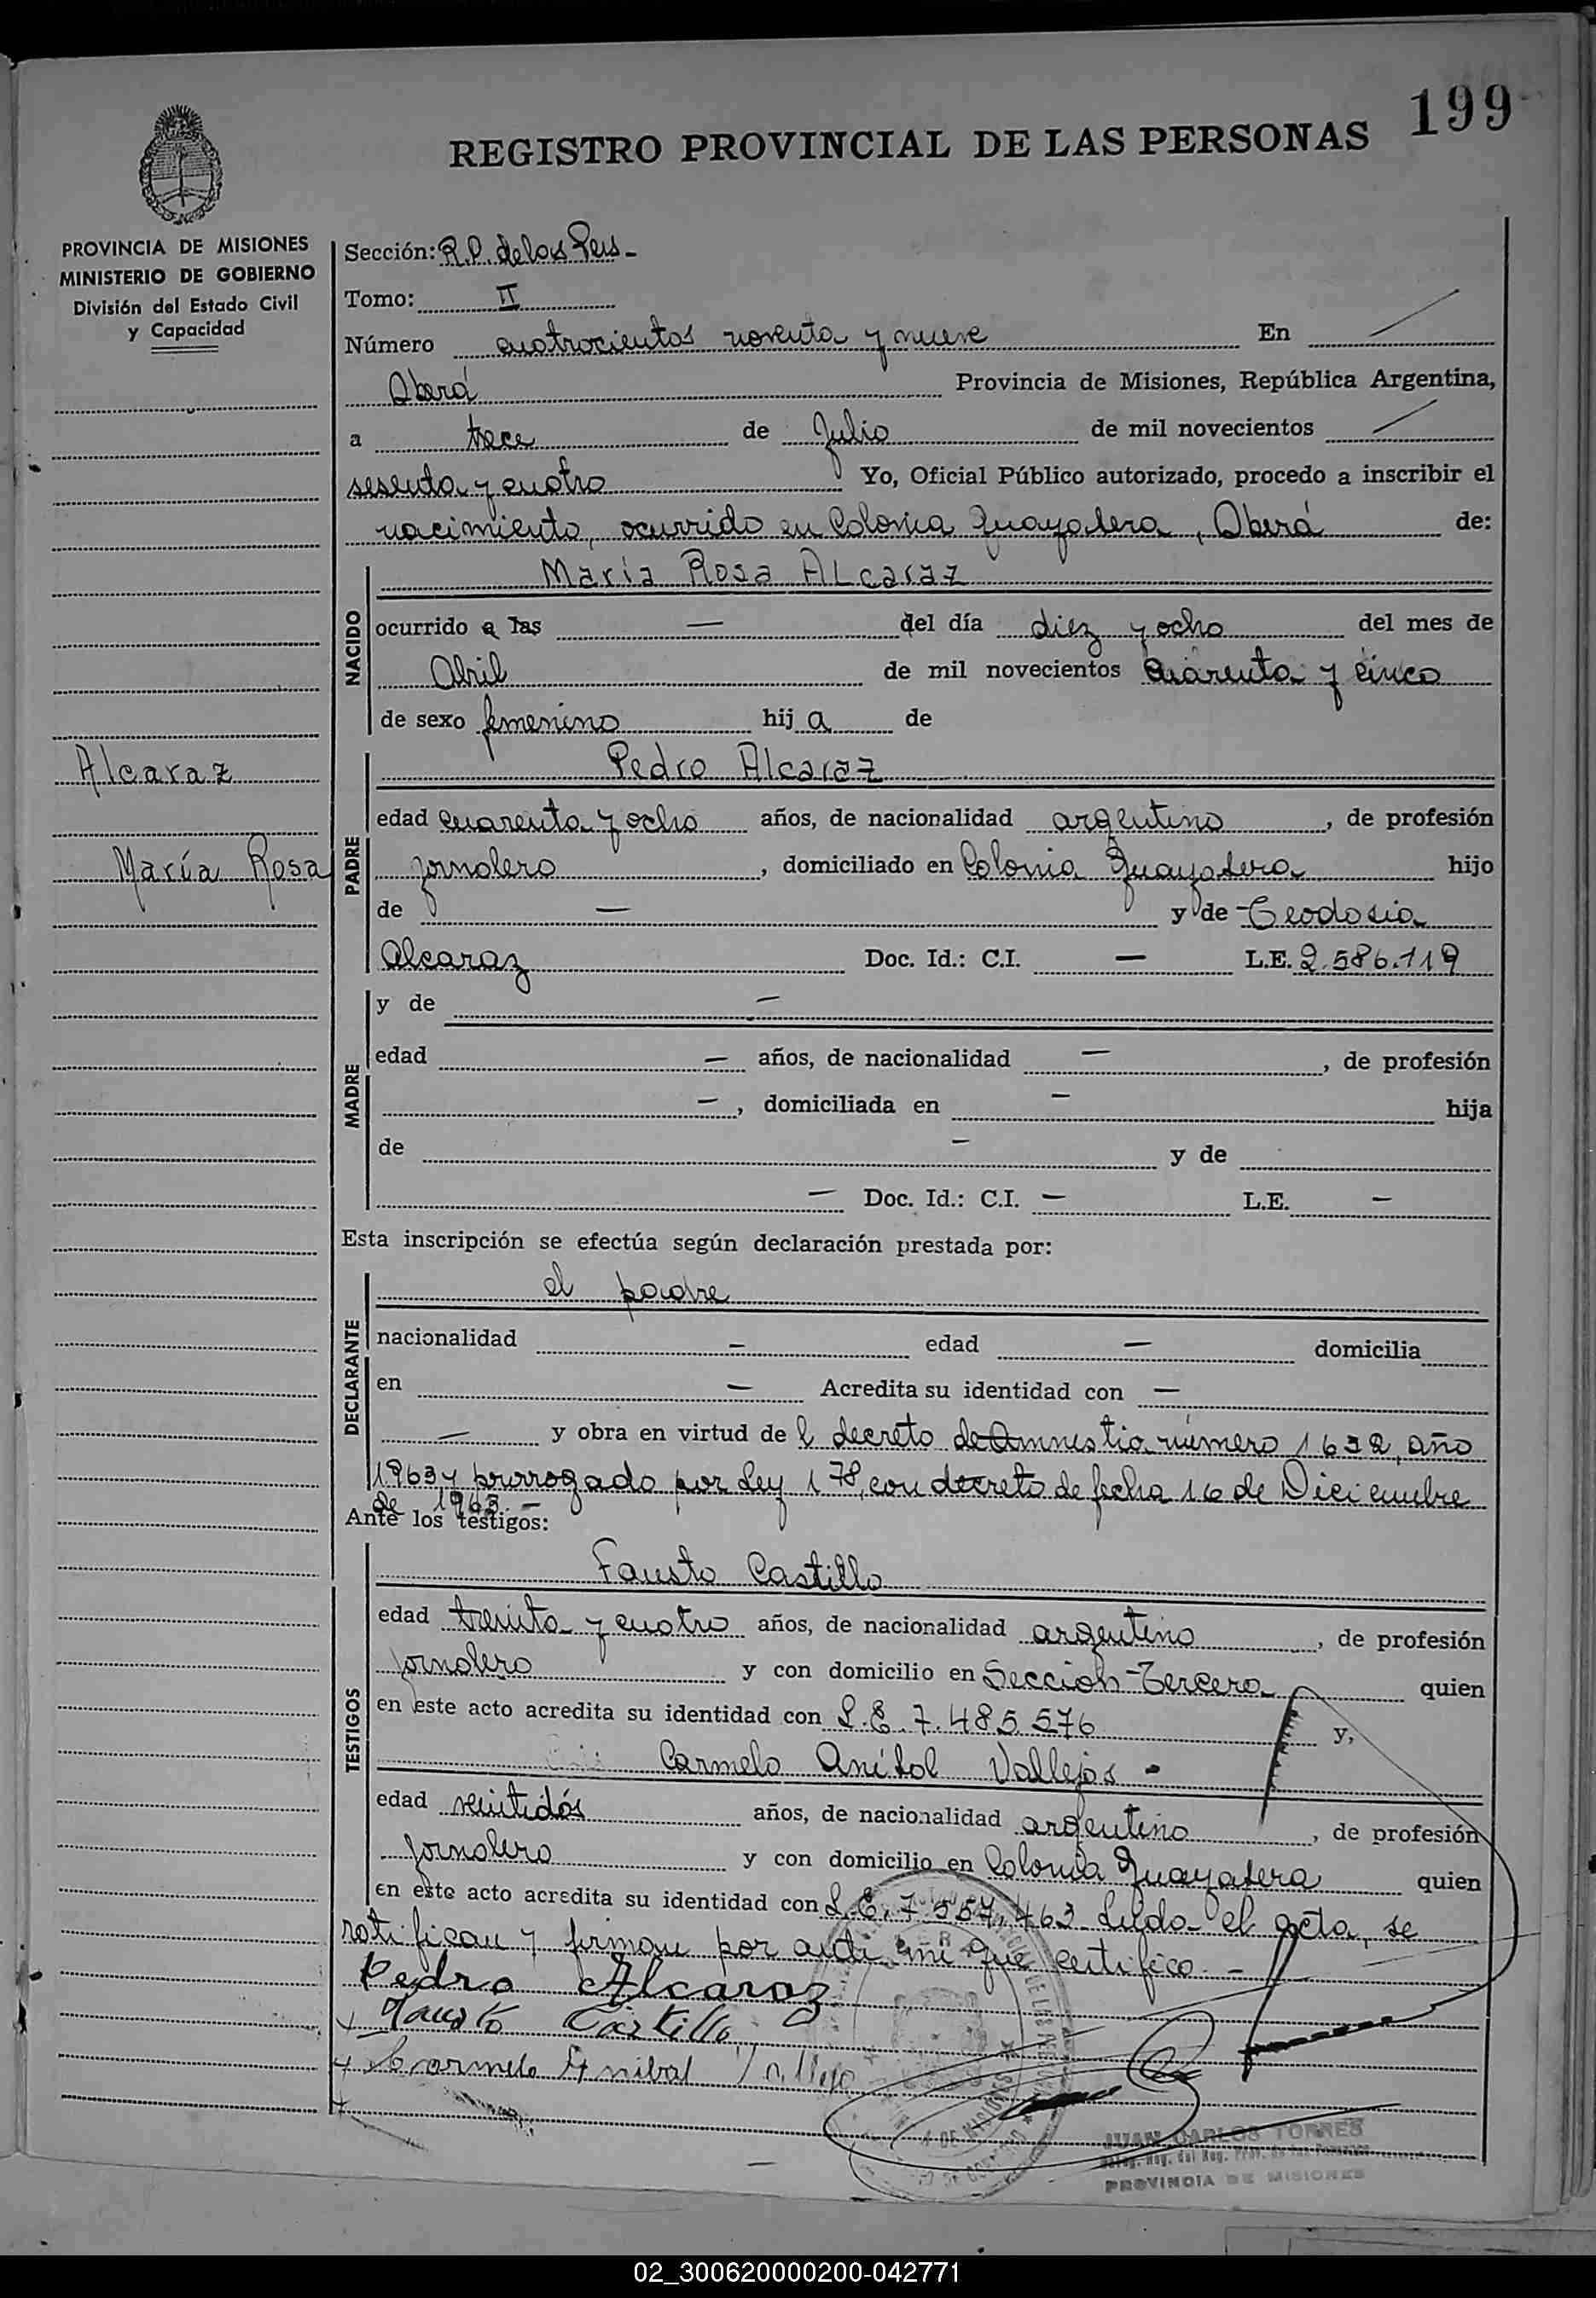 199
REGISTRO PROVINCIAL DE LAS PERSONAS
PROVINCIA DE MISIONES
MINISTERIO DE GOBIERNO
División del Estado Civil
y Capacidad
Sección: R.P. de las Pers -
Tomo: II
Número cuatrocientos noventa y nueve En /
Oberá Provincia de Misiones, República Argentina,
a trece de Julio de mil novecientos /
sesenta y cuatro Yo, Oficial Público autorizado, procedo a inscribir el
nacimiento, ocurrido en Colonia Guayabera, Oberá de:
María Rosa ALcaraz
NACIDO
ocurrido a las — del día diez y ocho del mes de
Abril de mil novecientos cuarenta y cinco
de sexo femenino hij a de
Alcaraz
María Rosa
Pedro Alcaraz
PADRE
edad cuarenta y ocho años, de nacionalidad argentino, de profesión
jornalero, domiciliado en Colonia Guayabera hijo
de — y de Teodosia
Alcaraz Doc. Id.: C.I. — L.E. 2.586.119
MADRE
y de —
edad — años, de nacionalidad —, de profesión
—, domiciliada en — hija
de — y de
— Doc. Id.: C.I. — L.E. —
Esta inscripción se efectúa según declaración prestada por:
el padre
DECLARANTE
nacionalidad — edad — domicilia
en — Acredita su identidad con —
— y obra en virtud de l decreto de Amnestia número 1632, año
1963 y prorrogado por Ley 178, con decreto de fecha 16 de Diciembre
de 1963. —
Ante los testigos:
Fausto Castillo
TESTIGOS
edad treinta y cuatro años, de nacionalidad argentino, de profesión
jornalero y con domicilio en Sección Tercera quien
en este acto acredita su identidad con L.E. 7.485.576 y,
Carmelo Anibal Vallejos -
edad veintidós años, de nacionalidad argentino, de profesión
jornalero y con domicilio en Colonia Guayabera quien
en este acto acredita su identidad con L.E. 7557.463 Leído el acta, se
ratifican y firman por ante mi que certifico. -
Pedro Alcaraz
Fausto Castillo
Carmelo Anibal Vallejo
JUAN CARLOS TORRES
PROVINCIA DE MISIONES
02_300620000200-042771